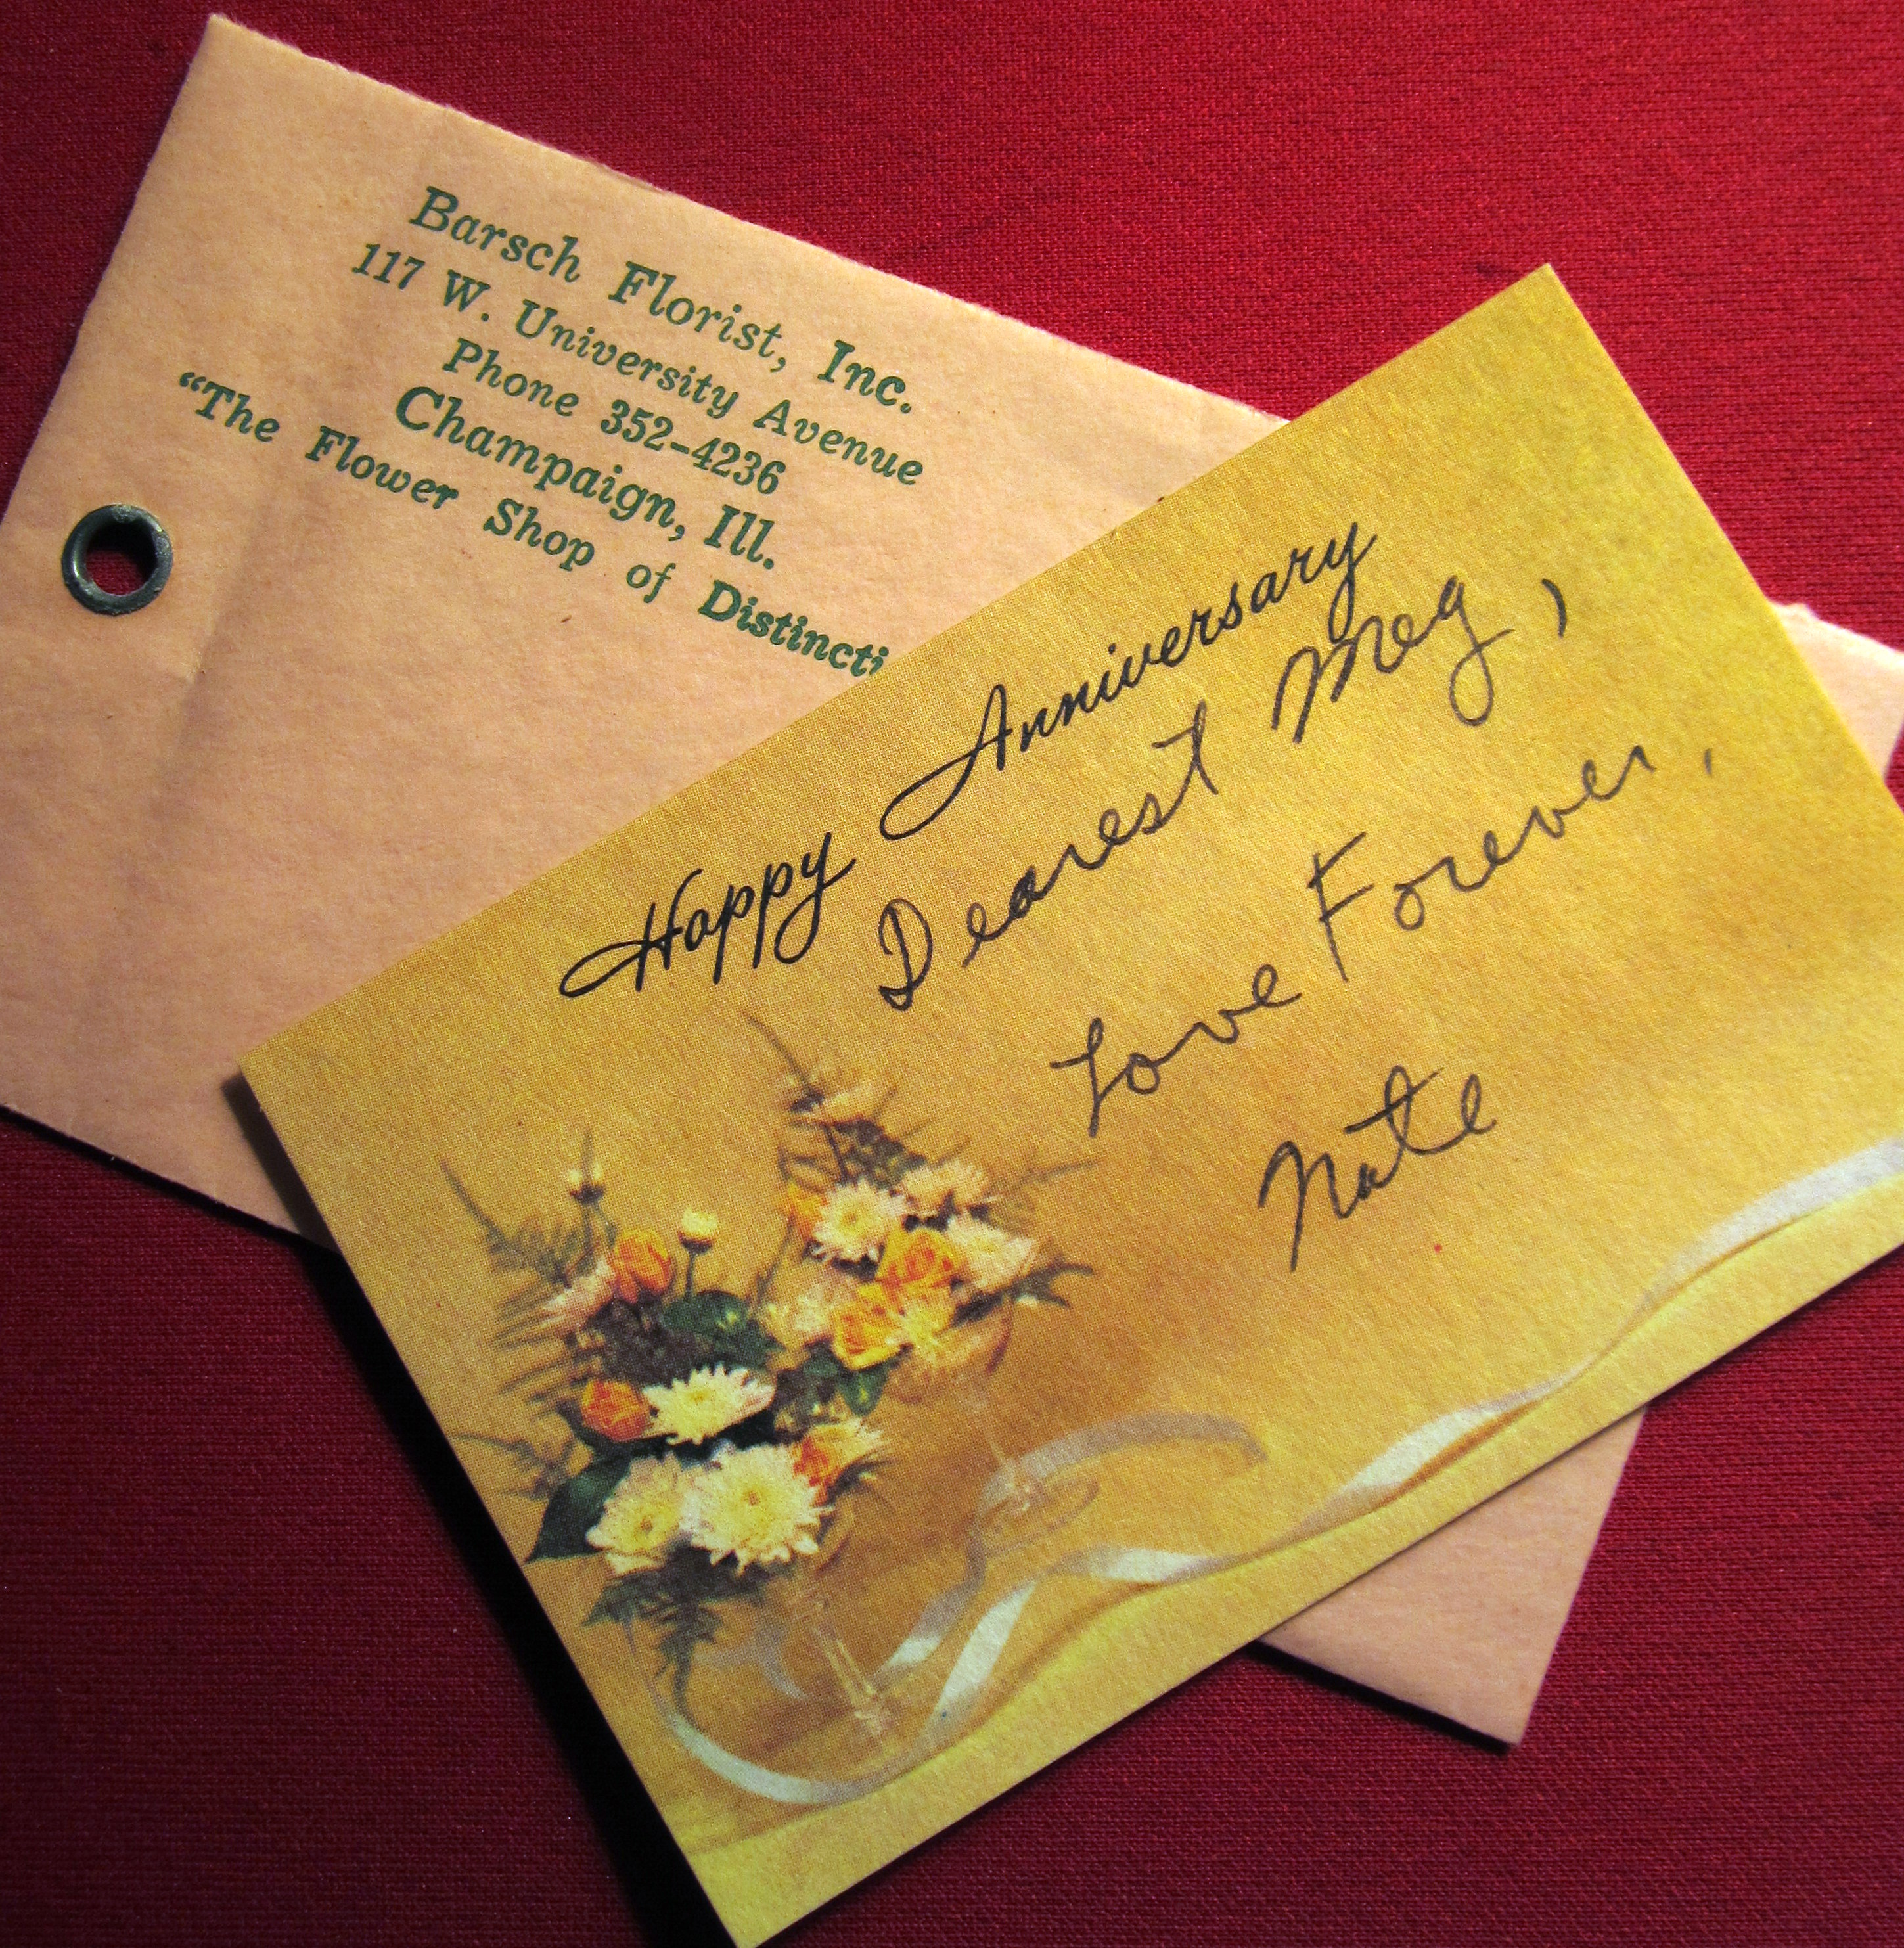 Barsch Florist, Inc.
117 W. University Avenue
Phone 352-4236
Champaign, Ill.
"The Flower Shop of Distincti
Happy Anniversary
Dearest Meg,
Love Forever,
Nate